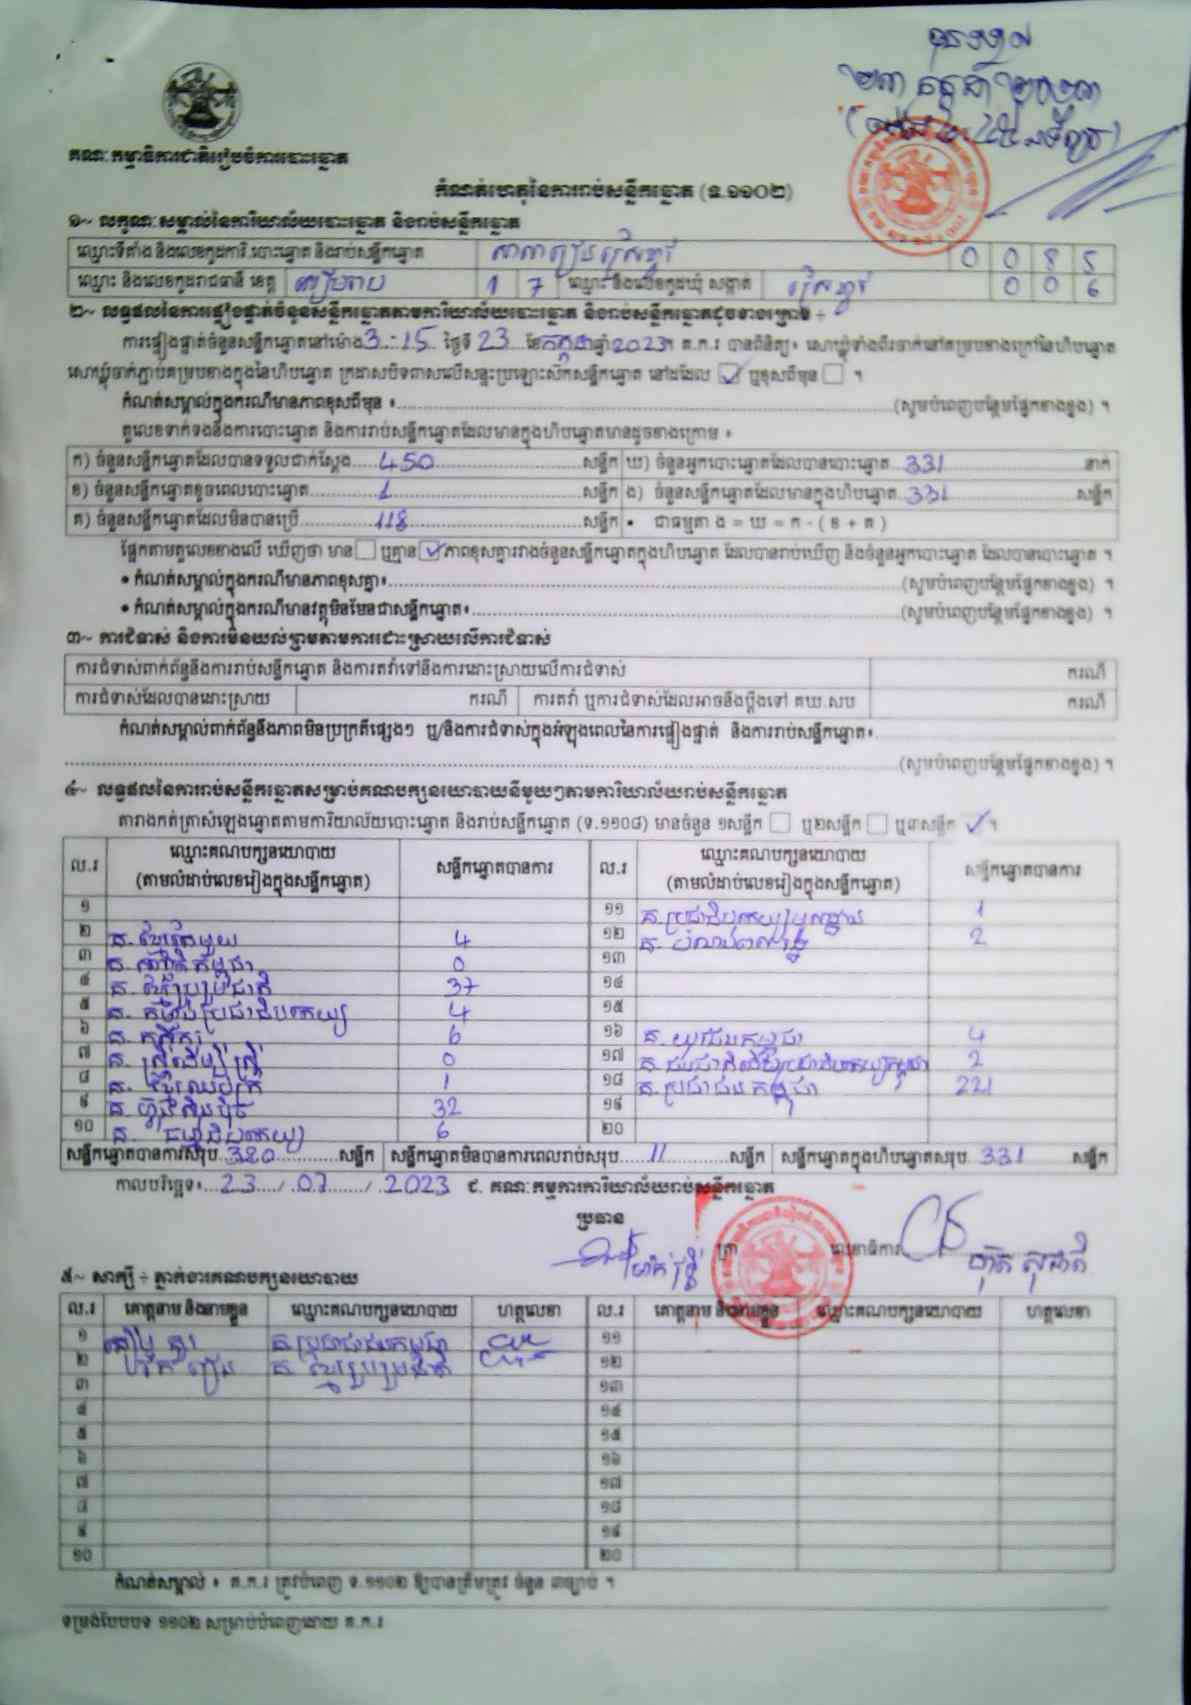 គណៈកម្មាធិការជាតិរៀបចំការបោះឆ្នោត
កំណត់ហេតុនៃការរាប់សន្លឹកឆ្នោត (ទ.១១០២)
១~ លក្ខណៈសម្គាល់នៃការិយាល័យបោះឆ្នោត និងរាប់សន្លឹកឆ្នោត
ឈ្មោះទីតាំង និងលេខកូដការិ.បោះឆ្នោត និងរាប់សន្លឹកឆ្នោត 0 0 8 5
ឈ្មោះ និងលេខកូដរាជធានី ខេត្ត សៀមរាប 1 7 ឈ្មោះ និងលេខកូដឃុំ សង្កាត់ 0 0 6
២~ លទ្ធផលនៃការផ្ទៀងផ្ទាត់ចំនួនសន្លឹកឆ្នោតតាមការិយាល័យបោះឆ្នោត និងរាប់សន្លឹកឆ្នោតដូចខាងក្រោម ÷
ការផ្ទៀងផ្ទាត់ចំនួនសន្លឹកឆ្នោតនៅម៉ោង 3:15 ថ្ងៃទី 23 ខែ កក្កដា ឆ្នាំ 2023។ គ.ក.រ បានពិនិត្យ៖ សោឃ្លុំទាំងពីរចាក់នៅគម្របខាងក្រៅនៃហិបឆ្នោត
សោឃ្លុំចាក់ភ្ជាប់គម្របខាងក្នុងនៃហិបឆ្នោត ក្រដាសបិទពាសលើសន្ទះប្រឡោះសិកសន្លឹកឆ្នោត នៅដដែល ☑ ឬខុសពីមុន ☐ ។
កំណត់សម្គាល់ក្នុងករណីមានភាពខុសពីមុន ៖ (សូមបំពេញបន្ថែមផ្នែកខាងខ្នង) ។
តួលេខទាក់ទងនឹងការបោះឆ្នោត និងការរាប់សន្លឹកឆ្នោតដែលមានក្នុងហិបឆ្នោតមានដូចខាងក្រោម ៖
ក) ចំនួនសន្លឹកឆ្នោតដែលបានទទួលជាក់ស្តែង 450 សន្លឹក ឃ) ចំនួនអ្នកបោះឆ្នោតដែលបានបោះឆ្នោត 331 នាក់
ខ) ចំនួនសន្លឹកឆ្នោតខូចពេលបោះឆ្នោត 1 សន្លឹក ង) ចំនួនសន្លឹកឆ្នោតដែលមានក្នុងហិបឆ្នោត 331 សន្លឹក
គ) ចំនួនសន្លឹកឆ្នោតដែលមិនបានប្រើ 118 សន្លឹក • ជាធម្មតា ង = ឃ = ក - ( ខ + គ )
ផ្អែកតាមតួលេខខាងលើ ឃើញថា មាន ☐ ឬគ្មាន ☑ ភាពខុសគ្នារវាងចំនួនសន្លឹកឆ្នោតក្នុងហិបឆ្នោត ដែលបានរាប់ឃើញ និងចំនួនអ្នកបោះឆ្នោត ដែលបានបោះឆ្នោត ។
• កំណត់សម្គាល់ក្នុងករណីមានភាពខុសគ្នា៖ (សូមបំពេញបន្ថែមផ្នែកខាងខ្នង) ។
• កំណត់សម្គាល់ក្នុងករណីមានវត្ថុមិនមែនជាសន្លឹកឆ្នោត៖ (សូមបំពេញបន្ថែមផ្នែកខាងខ្នង) ។
៣~ ការជំទាស់ និងការមិនយល់ព្រមតាមការដោះស្រាយលើការជំទាស់
ការជំទាស់ពាក់ព័ន្ធនឹងការរាប់សន្លឹកឆ្នោត និងការតវ៉ាទៅនឹងការដោះស្រាយលើការជំទាស់ ករណី
ការជំទាស់ដែលបានដោះស្រាយ ករណី ការតវ៉ា ឬការជំទាស់ដែលអាចនឹងប្តឹងទៅ គឃ.សប ករណី
កំណត់សម្គាល់ពាក់ព័ន្ធនឹងភាពមិនប្រក្រតីផ្សេងៗ ឬ/និងការជំទាស់ក្នុងអំឡុងពេលនៃការផ្ទៀងផ្ទាត់ និងការរាប់សន្លឹកឆ្នោត៖
(សូមបំពេញបន្ថែមផ្នែកខាងខ្នង) ។
៤~ លទ្ធផលនៃការរាប់សន្លឹកឆ្នោតសម្រាប់គណបក្សនយោបាយនីមួយៗតាមការិយាល័យរាប់សន្លឹកឆ្នោត
តារាងកត់ត្រាសំឡេងឆ្នោតតាមការិយាល័យបោះឆ្នោត និងរាប់សន្លឹកឆ្នោត (ទ.១១០៨) មានចំនួន ១សន្លឹក ☐ ឬ២សន្លឹក ☐ ឬ៣សន្លឹក ☑ ។
ល.រ ឈ្មោះគណបក្សនយោបាយ (តាមលំដាប់លេខរៀងក្នុងសន្លឹកឆ្នោត) សន្លឹកឆ្នោតបានការ ល.រ ឈ្មោះគណបក្សនយោបាយ (តាមលំដាប់លេខរៀងក្នុងសន្លឹកឆ្នោត) សន្លឹកឆ្នោតបានការ
១ ១១ គ.ប្រជាធិបតេយ្យមូលដ្ឋាន 1
២ គ. ខ្មែរតែមួយ 4 ១២ 2
៣ គ. ជាតិកម្ពុជា 0 ១៣
៤ គ. 37 ១៤
៥ គ. កម្លាំងប្រជាធិបតេយ្យ 4 ១៥
៦ គ. កសិករ 6 ១៦ គ. យុវជនកម្ពុជា 4
៧ គ. ស្ត្រីដើម្បីស្ត្រី 0 ១៧ 2
៨ គ. 1 ១៨ គ.ប្រជាជនកម្ពុជា 221
៩ គ. ហ៊្វុនស៊ិនប៉ិច 32 ១៩
១០ គ. 6 ២០
សន្លឹកឆ្នោតបានការសរុប 320 សន្លឹក សន្លឹកឆ្នោតមិនបានការពេលរាប់សរុប 11 សន្លឹក សន្លឹកឆ្នោតក្នុងហិបឆ្នោតសរុប 331 សន្លឹក
កាលបរិច្ឆេទ៖ 23 / 07 / 2023 ៥. គណៈកម្មការការិយាល័យរាប់សន្លឹកឆ្នោត
ប្រធាន
ត្រា លេខាធិការ
៥~ សាក្សី ÷ ភ្នាក់ងារគណបក្សនយោបាយ
ល.រ គោត្តនាម និងនាមខ្លួន ឈ្មោះគណបក្សនយោបាយ ហត្ថលេខា ល.រ គោត្តនាម និងនាមខ្លួន ឈ្មោះគណបក្សនយោបាយ ហត្ថលេខា
១ គ.ប្រជាជនកម្ពុជា ១១
២ ១២
៣ ១៣
៤ ១៤
៥ ១៥
៦ ១៦
៧ ១៧
៨ ១៨
៩ ១៩
១០ ២០
កំណត់សម្គាល់ ៖ គ.ក.រ ត្រូវបំពេញ ទ.១១០២ ឱ្យបានត្រឹមត្រូវ ចំនួន ៣ច្បាប់ ។
ទម្រង់បែបបទ ១១០២ សម្រាប់បំពេញដោយ គ.ក.រ